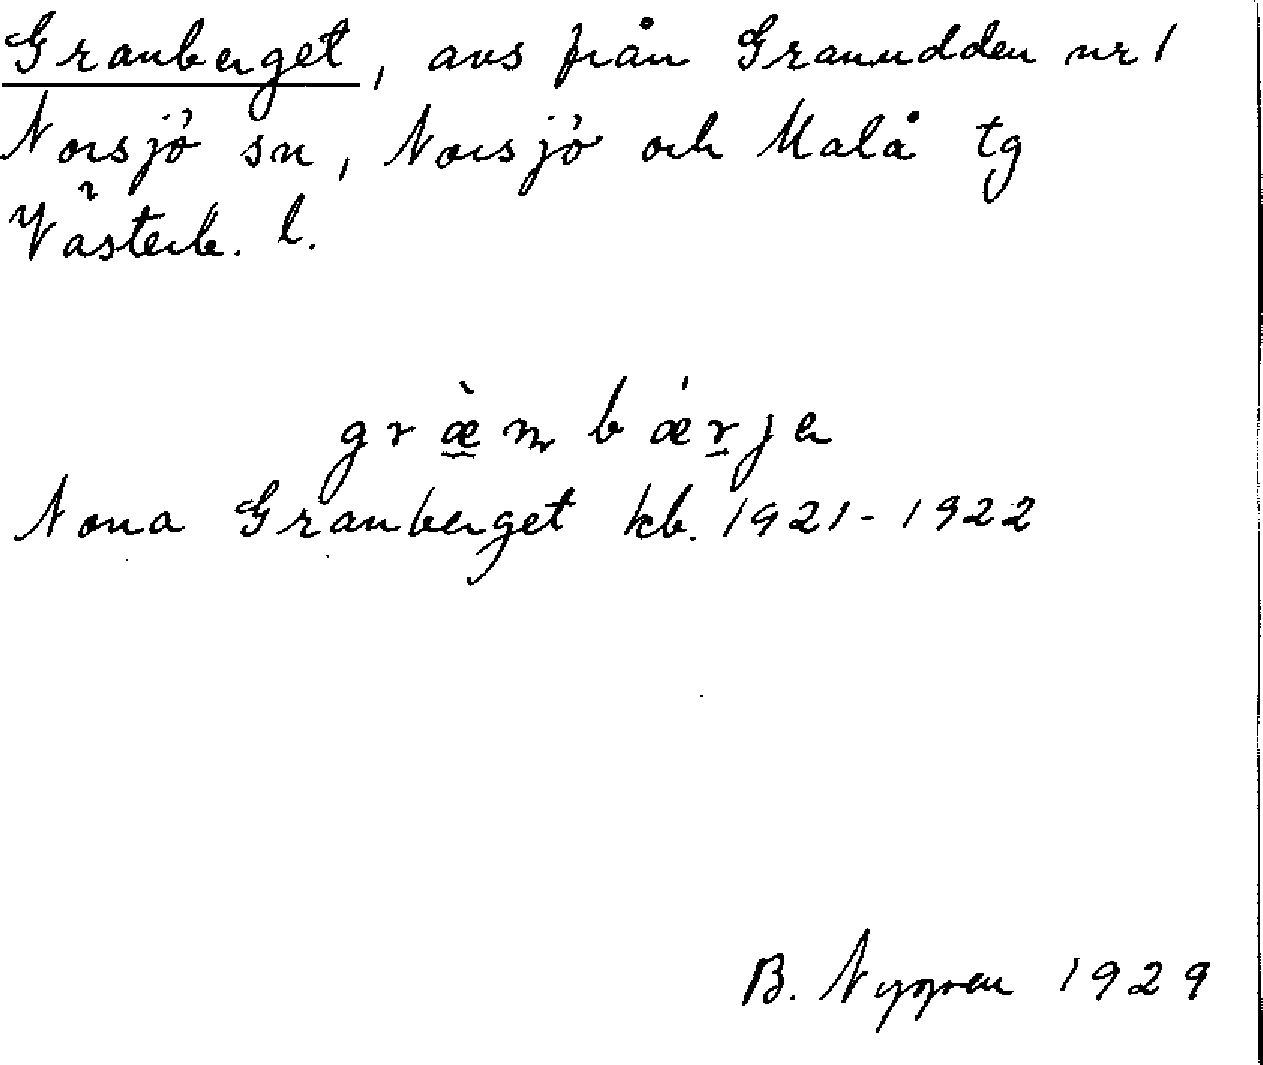 Granberget, avs från Granudden nr 1
Norsjö sn, Norsjö och Malå tg
Västerb. l.
græ̀m bǽrje
Norra Granberget kb. 1921-1922
B. Nygren 1929